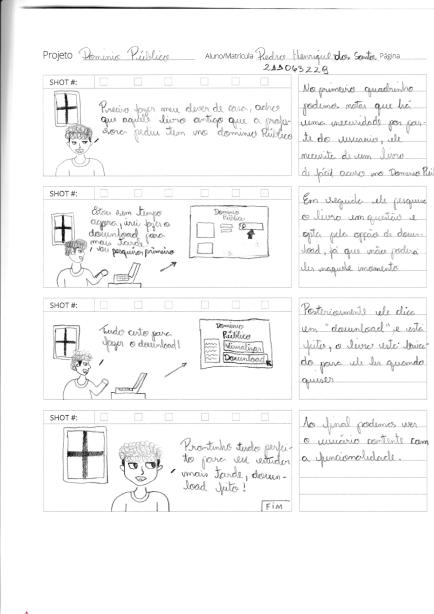 Projeto Dominio Público Aluno/Matrícula Pedro Henrique dos Santos Página
211063229
SHOT #:
Preciso fazer meu dever de casa, acho
que aquele livro antigo que a profes-
sora pediu tem no dominio Público
No primeiro quadrinho
podemos notar que há
uma necessidade por par-
te do usuario, ele
necessita de um livro
de fácil acesso no Dominio Públi
SHOT #:
Estou sem tempo
agora, irei fazer o
download para
mais tarde!
vou pesquisar primeiro
Dominio
Público
Em seguida ele pesquisa
o livro em questão e
opta pela opção de down-
load, já que não poderá
ler naquele momento
SHOT #:
Tudo certo para
fazer o download!
Dominio
Público
Visualizar
Download
Posteriormente ele clica
em "download" e está
feito, o livro está baixa-
do para ele ler quando
quiser
SHOT #:
Prontinho tudo perfei-
to para eu estudar
mais tarde, down-
load feito!
FIM
Ao final podemos ver
o usuário contente com
a funcionalidade.